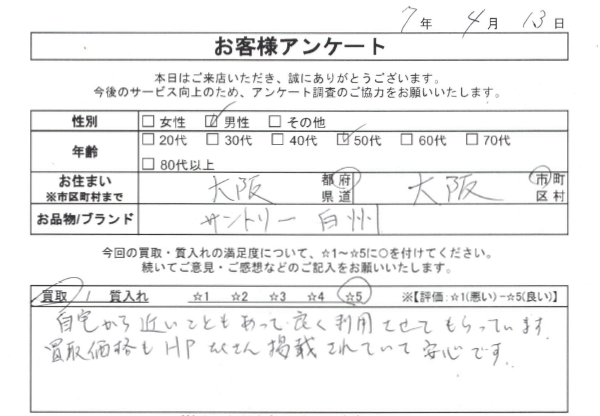 7年 4月 13日
お客様アンケート
本日はご来店いただき、誠にありがとうございます。
今後のサービス向上のため、アンケート調査のご協力をお願いいたします。
性別 □女性 ☑男性 □その他
年齢 □20代 □30代 □40代 ☑50代 □60代 □70代
□80代以上
お住まい ※市区町村まで 大阪 都府県道 大阪 市町区村
お品物/ブランド サントリー 白州
今回の買取・質入れの満足度について、☆1～☆5に○を付けてください。
続いてご意見・ご感想などのご記入をお願いいたします。
買取 / 質入れ ☆1 ☆2 ☆3 ☆4 ☆5 ※【評価:☆1(悪い)−☆5(良い)】
自宅から近いこともあって良く利用させてもらっています。
買取価格もHPたくさん掲載されていて安心です。